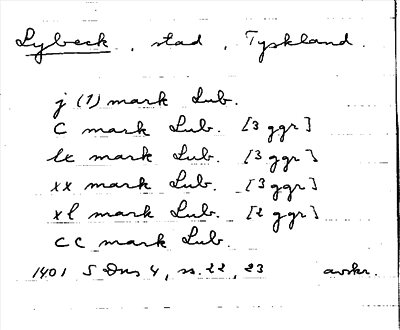 Lybeck, stad, Tyskland.
j (1) mark Lub.
C mark Lub. [3 ggr]
lx mark Lub. [3 ggr]
xx mark Lub. [3 ggr]
xl mark Lub. [2 ggr]
CC mark Lub.
1401 S Dns 4, ss. 22, 23 avskr.